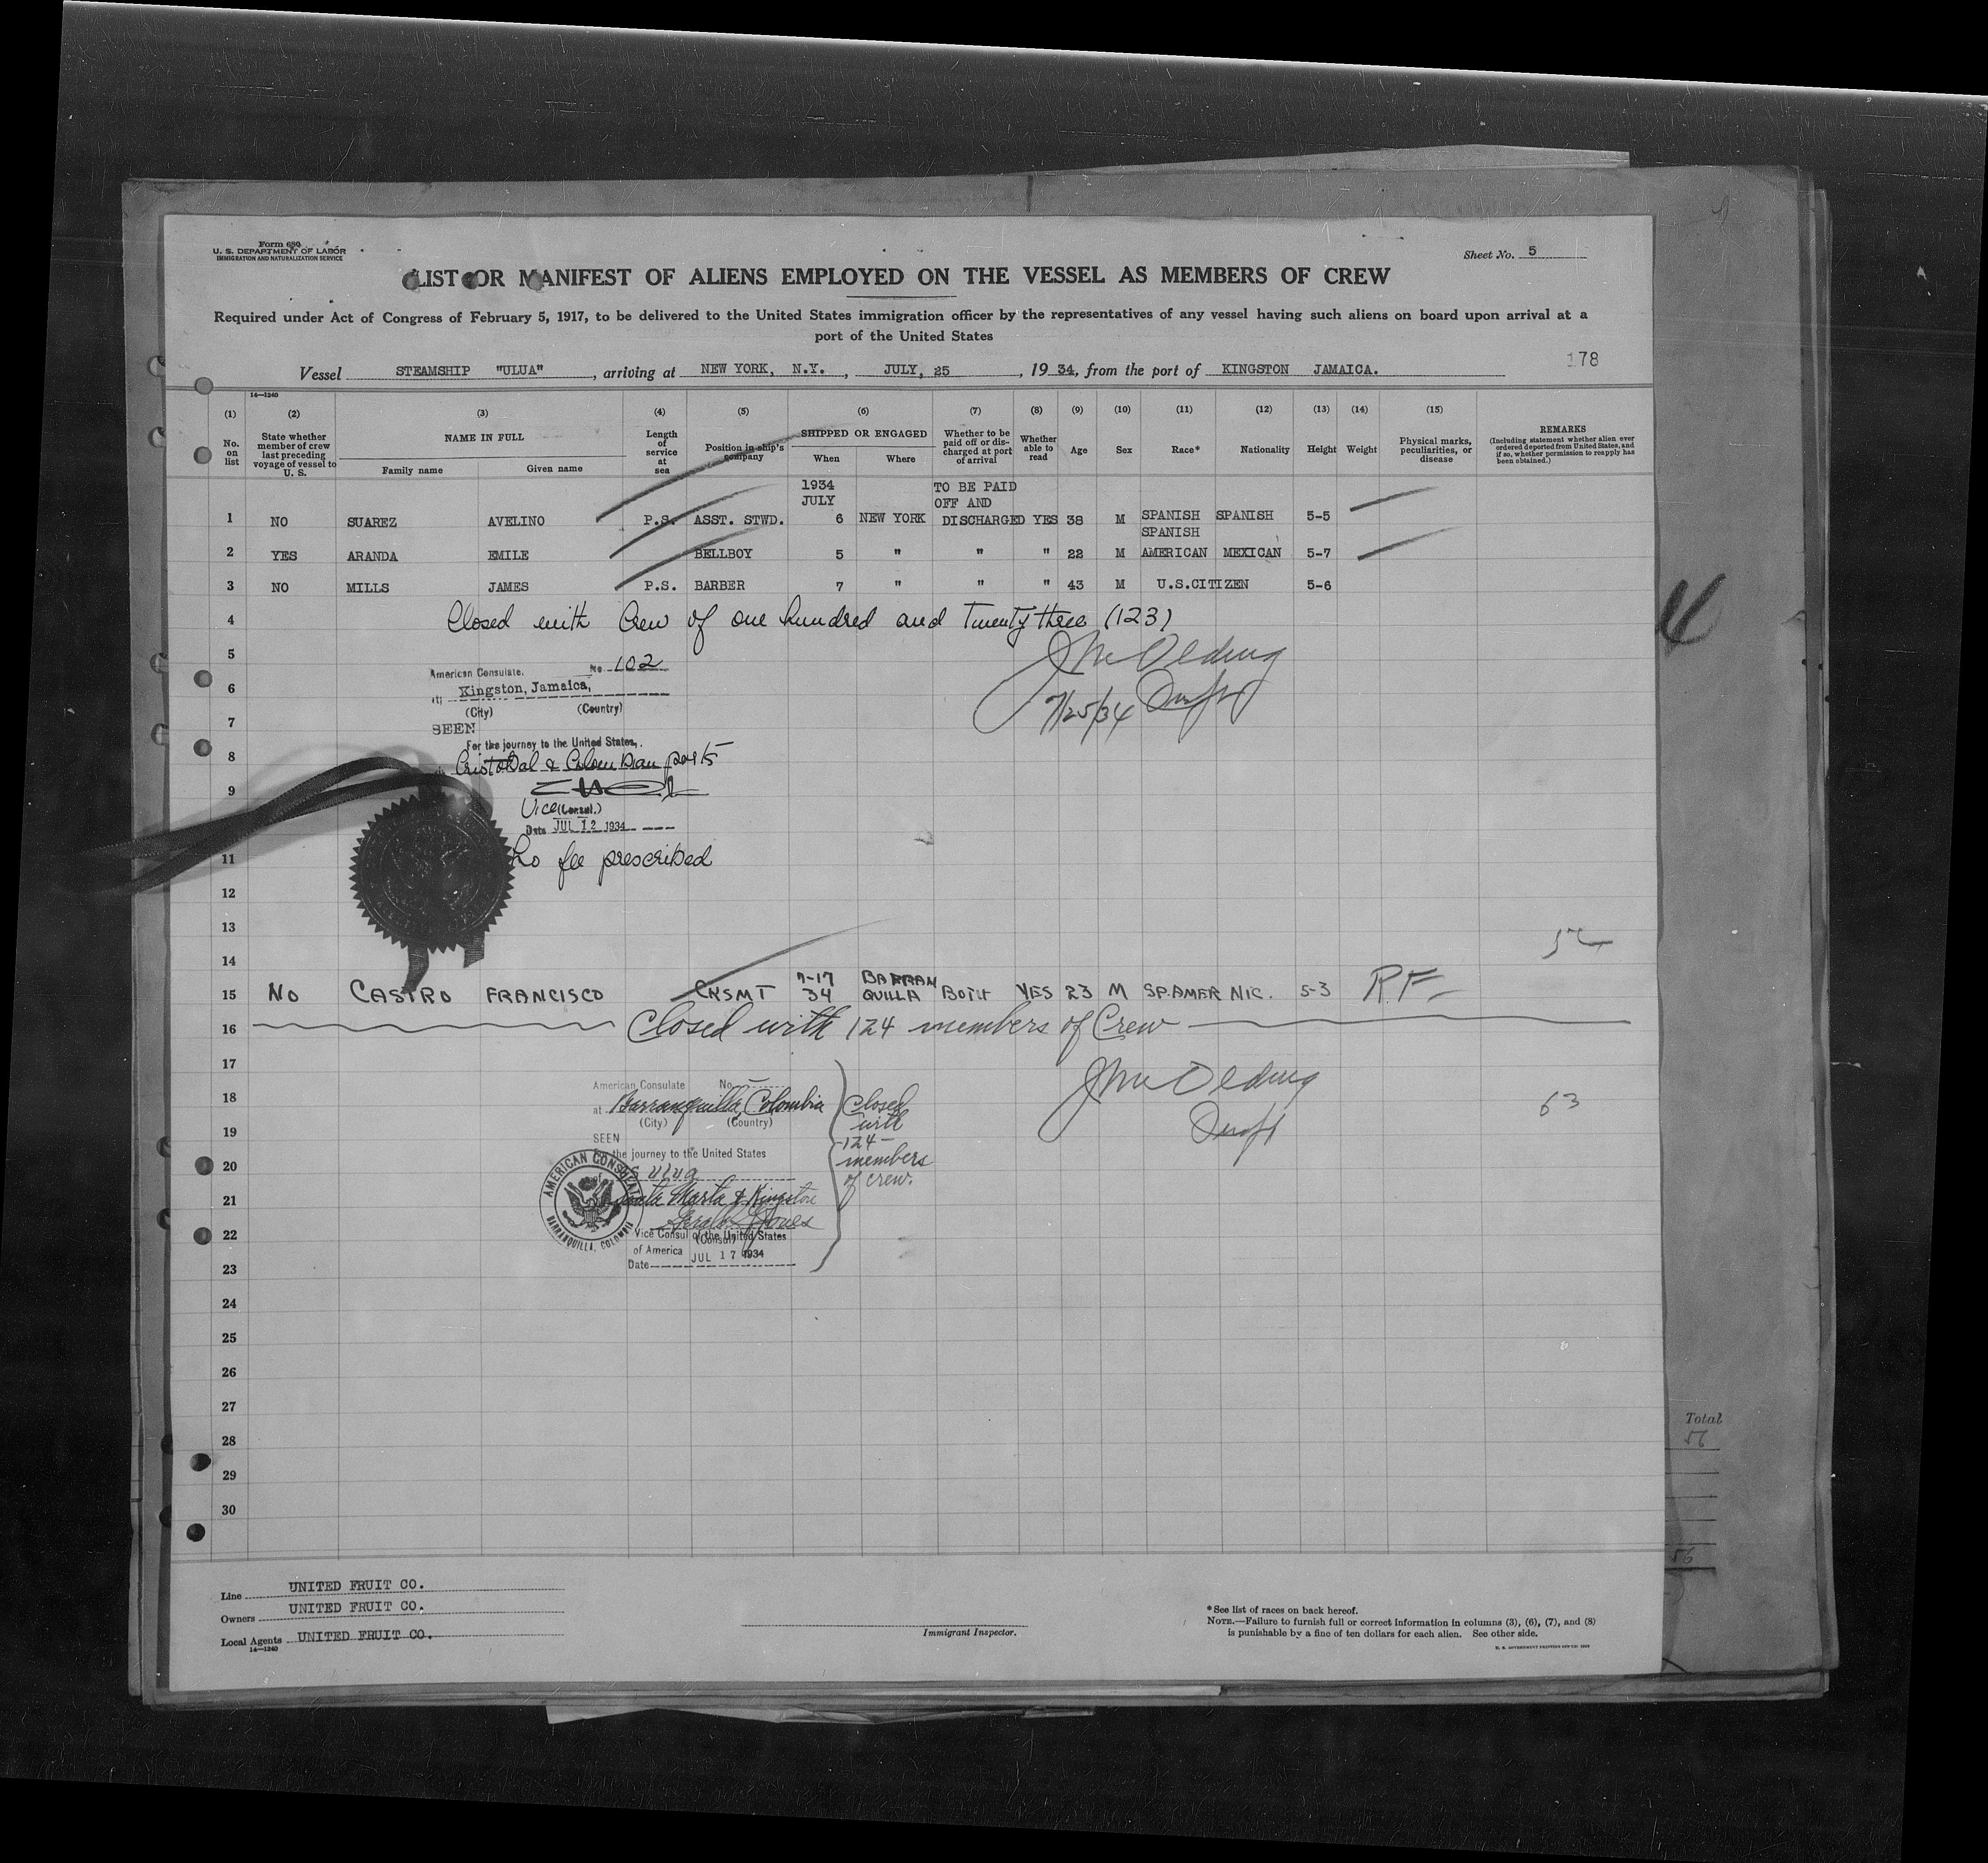 Form 680
U. S. DEPARTMENT OF LABOR
IMMIGRATION AND NATURALIZATION SERVICE
Sheet No. 5
LIST OR MANIFEST OF ALIENS EMPLOYED ON THE VESSEL AS MEMBERS OF CREW
Required under Act of Congress of February 5, 1917, to be delivered to the United States immigration officer by the representatives of any vessel having such aliens on board upon arrival at a
port of the United States
178
Vessel STEAMSHIP "ULUA", arriving at NEW YORK, N.Y., JULY, 25, 1934, from the port of KINGSTON JAMAICA.
14—1240
(1) (2) (3) (4) (5) (6) (7) (8) (9) (10) (11) (12) (13) (14) (15)
No. on list
State whether member of crew last preceding voyage of vessel to U. S.
NAME IN FULL
Family name Given name
Length of service at sea
Position in ship's company
SHIPPED OR ENGAGED
When Where
Whether to be paid off or discharged at port of arrival
Whether able to read
Age Sex Race* Nationality Height Weight
Physical marks, peculiarities, or disease
REMARKS
(Including statement whether alien ever ordered deported from United States, and if so, whether permission to reapply has been obtained.)
1934 TO BE PAID
JULY OFF AND
1 NO SUAREZ AVELINO P.S. ASST. STWD. 6 NEW YORK DISCHARGED YES 38 M SPANISH SPANISH 5-5
SPANISH
2 YES ARANDA EMILE BELLBOY 5 " " " 22 M AMERICAN MEXICAN 5-7
3 NO MILLS JAMES P.S. BARBER 7 " " " 43 M U.S.CITIZEN 5-6
4 Closed with Crew of one hundred and twenty three (123)
5
American Consulate. No 102
6
Kingston, Jamaica,
(City) (Country)
7/25/34
7
SEEN
For the journey to the United States,
8
Cristobal & Colombian ports
9
Vice (Consul.)
Date JUL 12 1934
11 No fee prescribed
12
13
14
7-17 BARRAN
15 NO CASTRO FRANCISCO CKSMT 34 QUILLA BOTH YES 23 M SP.AMER NIC. 5-3 R.F.
16 Closed with 124 members of Crew
17
American Consulate No.
18
at Barranquilla, Colombia
(City) (Country)
63
Closed
with
124
members
of crew.
19
SEEN
the journey to the United States
20
SS Ulua
21
Santa Marta & Kingston
22
Vice Consul of the United States
(Consul)
of America
JUL 17 1934
Date
AMERICAN CONSULATE
BARRANQUILLA, COLOMBIA
23
24
25
26
27
28
29
30
Total
56
56
Line UNITED FRUIT CO.
Owners UNITED FRUIT CO.
Local Agents UNITED FRUIT CO.
14—1240
Immigrant Inspector.
*See list of races on back hereof.
NOTE.—Failure to furnish full or correct information in columns (3), (6), (7), and (8)
is punishable by a fine of ten dollars for each alien. See other side.